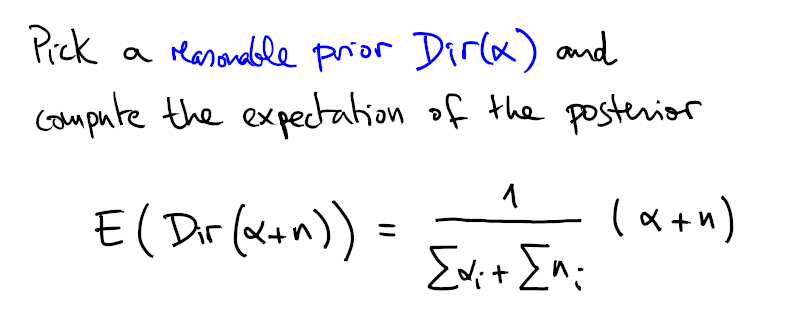 Pick a reasonable prior Dir(α) and
compute the expectation of the posterior
E(Dir(α+n)) = 1/(∑αᵢ + ∑nᵢ) (α+n)